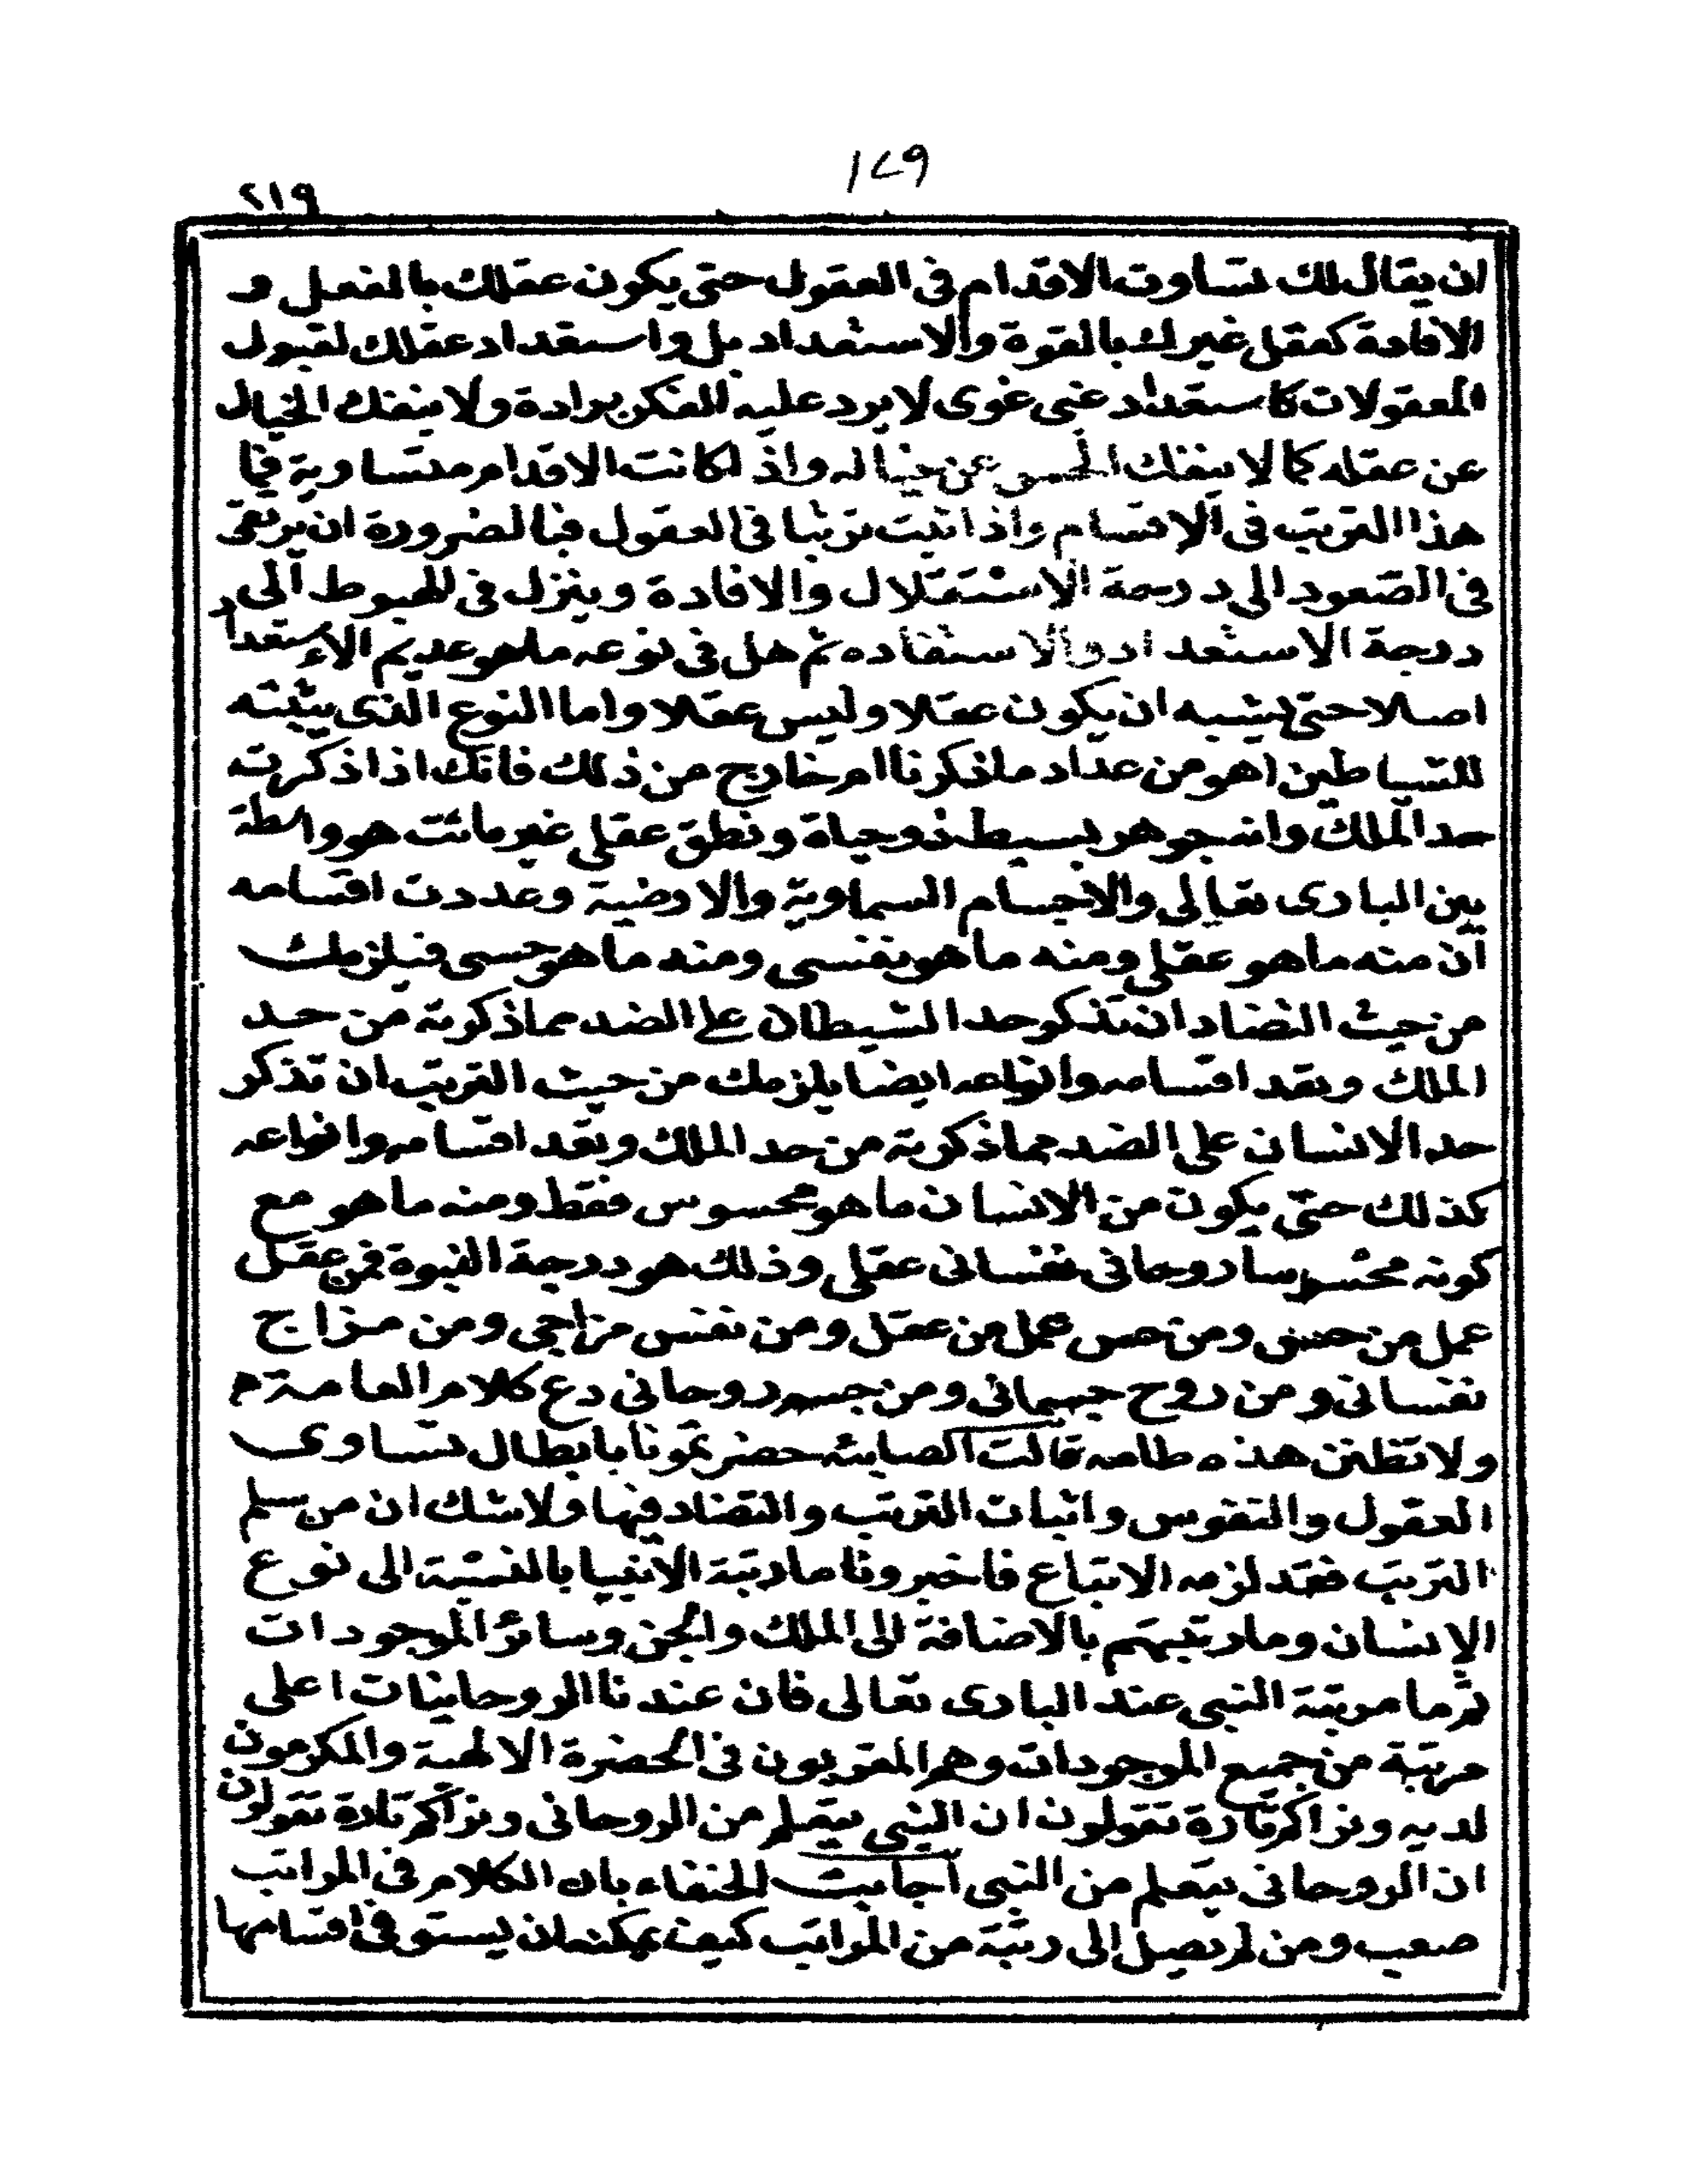 ١٧٩
٢١٩
ان يقال لك تساوت الاقدام في العقول حتى يكون عقلك بالفعل و
الافادة كعقل غيرك بالقوة والاستعداد بل واستعداد عقلك لقبول
المعقولات كاستعداد غبي غوى لا يرد عليه الفكر برادة ولا ينفك الخيال
عن عقله كما لا ينفك الحس عن خياله واذ لكانت الاقدام متساوية فما
هذا الترتب في الاقسام واذا اثبت ترتبا في العقول فبالضرورة ان يرتقى
في الصعود الى درجة الاستقلال والافادة وينزل في الهبوط الى د
درجة الاستعداد والاستفاده ثم هل في نوعه ما هو عديم الاستعداد
اصلا حتى يشبه ان يكون عقلا وليس عقلا واما النوع الذى يثبته
للشياطين اهو من عداد ما ذكرنا ام خارج من ذلك فانك اذا ذكرت
حد الملك وانه جوهر بسيط ذو حياة ونطق عقلي غير مائت هو واسطة
بين البارى تعالى والاجسام السماوية والارضية وعددت اقسامه
ان منه ما هو عقلي ومنه ما هو نفسي ومنه ما هو حسي فيلزمك
من حيث التضاد ان تذكر حد الشيطان على الضد مما ذكرته من حد
الملك وتعد اقسامه وانواعه ايضا يلزمك من حيث الترتب ان تذكر
حد الانسان على الضد مما ذكرته من حد الملك وتعد اقسامه وانواعه
كذلك حتى يكون من الانسان ما هو محسوس فقط ومنه ما هو مع
كونه محسوسا روحاني نفساني عقلي وذلك هو درجة النبوة فمن عقل
عمل من حسي ومن حس عمل من عقل ومن نفس مزاجي ومن مزاج
نفساني ومن روح جسماني ومن جسم روحاني دع كلام العامة م
ولا تظنن هذه طامه قالت الصابئه حضرتمونا بابطال تساوى
العقول والنفوس واثبات الترتب والتضاد فيها ولا شك ان من سلم
الترتب فقد لزمه الاتباع فاخبرونا ما رتبة الانبيا بالنسبة الى نوع
الانسان وما رتبتهم بالاضافة الى الملك والجن وسائر الموجودات
ثم ما مرتبة النبي عند البارى تعالى فان عندنا الروحانيات اعلى
مرتبة من جميع الموجودات وهم المقربون في الحضرة الالهية والمكرمون
لديه ونراكم تارة تقولون ان النبي يتعلم من الروحاني ونراكم تارة تقولون
ان الروحاني يتعلم من النبي اجابت الحنفاء بان الكلام في المراتب
صعب ومن لم تصل الى رتبة من المراتب كيف يمكنه ان يستوفي اقسامها